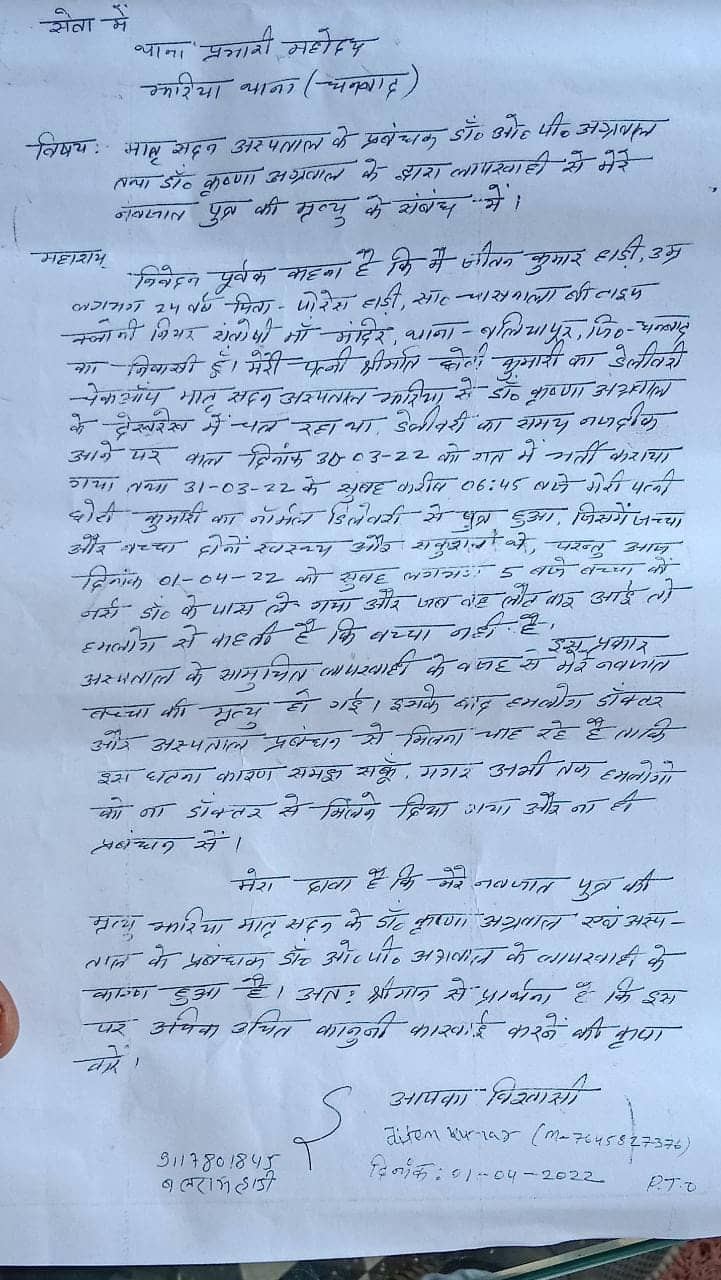 सेवा में
थाना प्रभारी महोदय
झरिया थाना (धनबाद)
विषय: मातृ सदन अस्पताल के प्रबंधक डॉ० ओ० पी० अग्रवाल
तथा डॉ० कृष्णा अग्रवाल के द्वारा लापरवाही से मेरे
नवजात पुत्र की मृत्यु के संबंध में।
महाशय,
निवेदन पूर्वक कहना है कि मैं जीतन कुमार हाड़ी, उम्र
लगभग 24 वर्ष पिता- परेश हाड़ी, सा०- चासनाला
कलोनी नियर संतोषी माँ मंदिर, थाना- बलियापुर, जि०- धनबाद
का निवासी हूँ। मेरी पत्नी श्रीमति छोटी कुमारी का डेलीवरी
चेकऑप मातृ सदन अस्पताल झरिया से डॉ० कृष्णा अग्रवाल
के देखरेख में चल रहा था, डेलीवरी का समय नजदीक
आने पर कल दिनांक 30-03-22 को रात में भर्ती कराया
गया तथा 31-03-22 के सुबह करीब 06:45 बजे मेरी पत्नी
छोटी कुमारी का नॉर्मल डिलेवरी से पुत्र हुआ, जिसमें जच्चा
और बच्चा दोनों स्वस्थ्य और सकुशल थे, परन्तु आज
दिनांक 01-04-22 को सुबह लगभग 5 बजे बच्चा को
नर्स डॉ० के पास ले गया और जब वह लौट कर आई तो
हमलोग से कहती है कि बच्चा नहीं है।
इस प्रकार
अस्पताल के सामुचित लापरवाही के वजह से मेरे नवजात
बच्चा की मृत्यु हो गई। इसके बाद हमलोग डॉक्टर
और अस्पताल प्रबंधन से मिलना चाह रहे है ताकि
इस घटना कारण समझ सकूँ, मगर अभी तक हमलोगो
को ना डॉक्टर से मिलने दिया गया और ना ही
प्रबंधन से।
मेरा दावा है कि मेरे नवजात पुत्र की
मृत्यु झरिया मातृ सदन के डॉ० कृष्णा अग्रवाल एवं अस्प-
ताल के प्रबंधक डॉ० ओ० पी० अग्रवाल के लापरवाही के
कारण हुआ है। अत: श्रीमान से प्रार्थना है कि इस
पर अधिक उचित कानुनी कारवाई करने की कृपा
करें।
आपका विश्वासी
Jiten Kumar (M-7645827376)
दिनांक: 01-04-2022
9117801845
बलराम हाड़ी
P.T.O